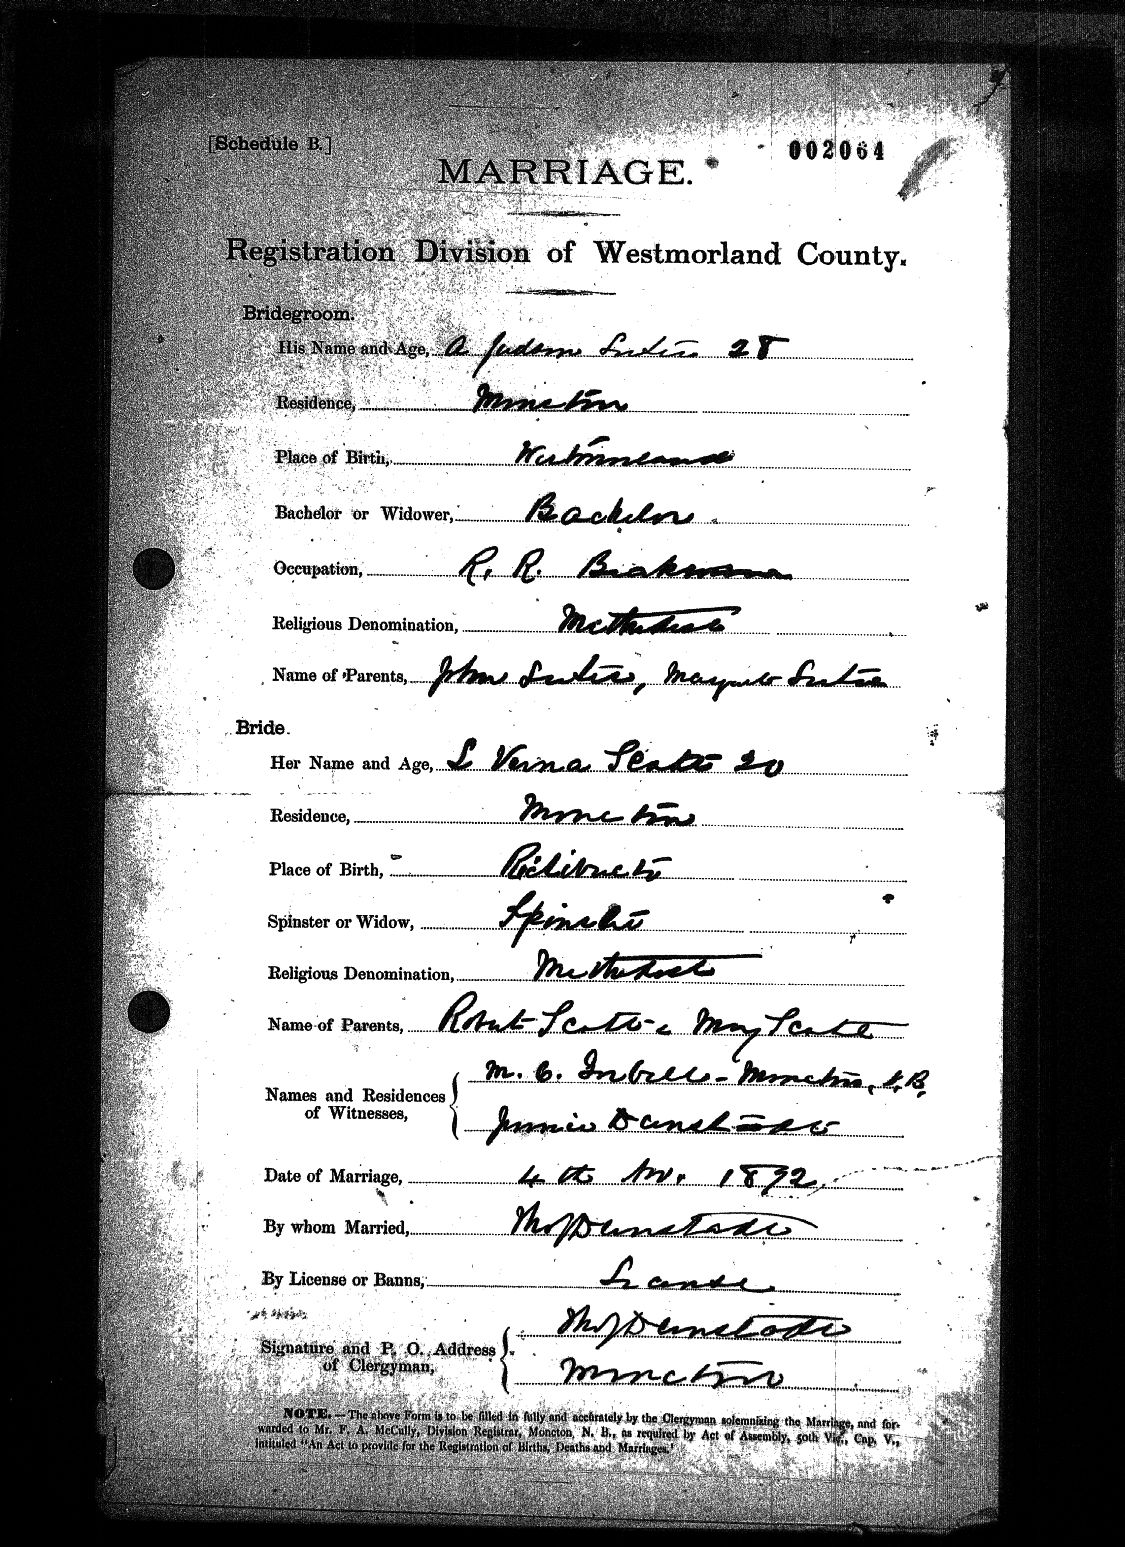 [Schedule B.]
002064
MARRIAGE.
Registration Division of Westmorland County.
Bridegroom.
His Name and Age, A Judson 28
Residence, Moncton
Place of Birth, Westmorland
Bachelor or Widower, Bachelor
Occupation, R. R. Brakeman
Religious Denomination, Methodist
Name of Parents, John Margaret
Bride.
Her Name and Age, L Verna Scott 20
Residence, Moncton
Place of Birth, Richibucto
Spinster or Widow, Spinster
Religious Denomination, Methodist
Name of Parents, Robert Scott & May Scott
Names and Residences of Witnesses, M. C. - Moncton, N.B.
Jennie Deinstadt
Date of Marriage, 4th Nov. 1892
By whom Married, Thos J Deinstadt
By License or Banns, License
Signature and P. O. Address of Clergyman, Thos J Deinstadt
Moncton
NOTE.—The above Form is to be filled in fully and accurately by the Clergyman solemnizing the Marriage, and for-
warded to Mr. F. A. McCully, Division Registrar, Moncton, N. B., as required by Act of Assembly, 50th Vic., Cap. V.,
intituled "An Act to provide for the Registration of Births, Deaths and Marriages."